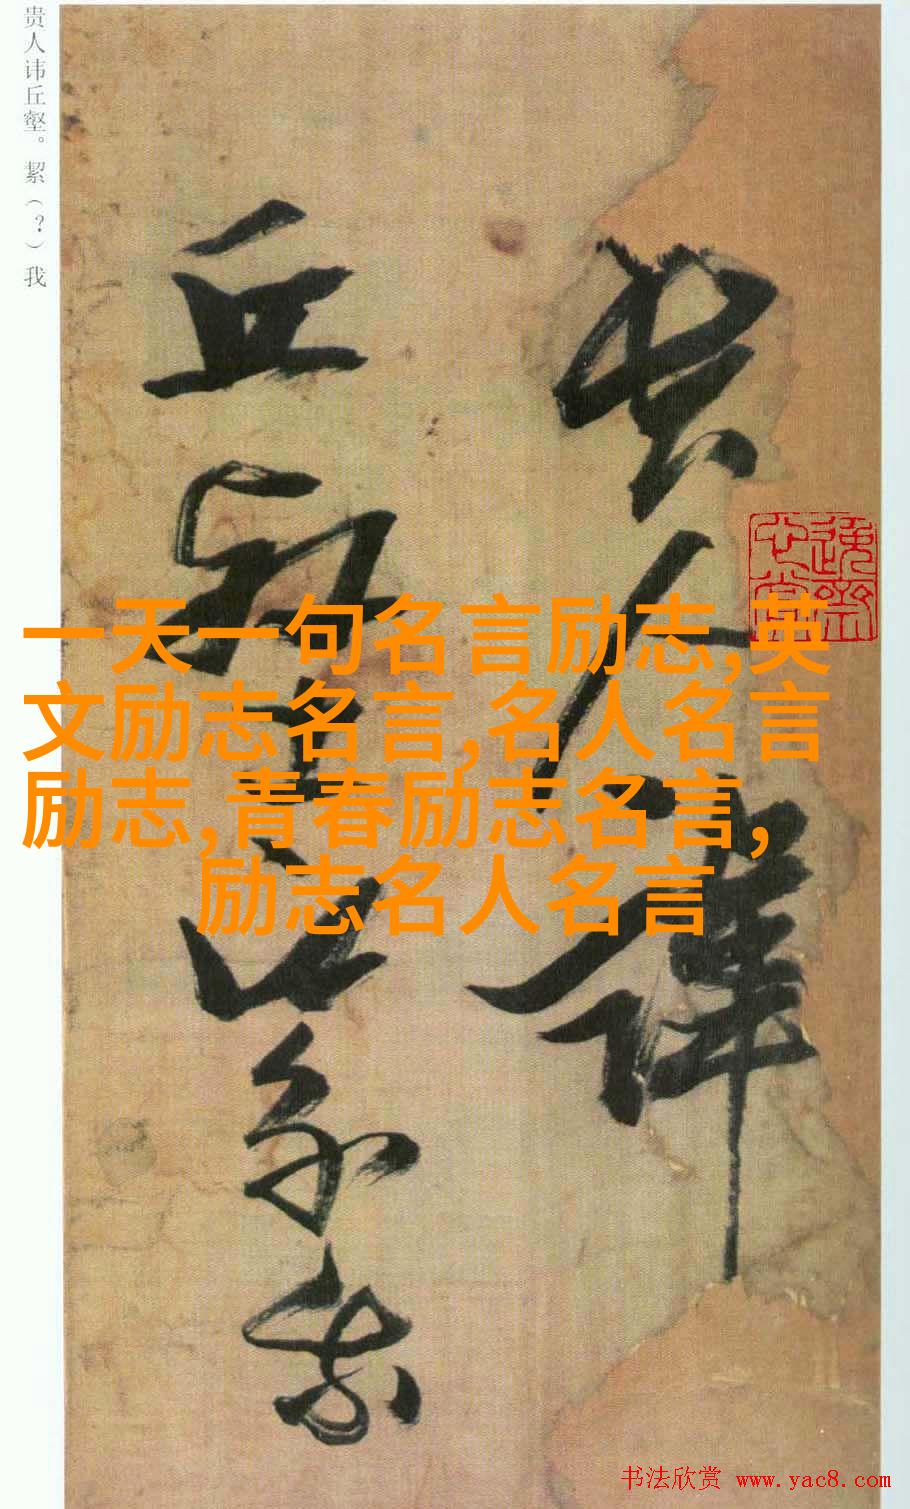 贵人讳丘壑。絜（？）我
贵人讳
丘壑絜我
一天一句名言励志,英
文励志名言,名人名言
励志,青春励志名言，
励志名人名言
书法欣赏 www.yac8.com